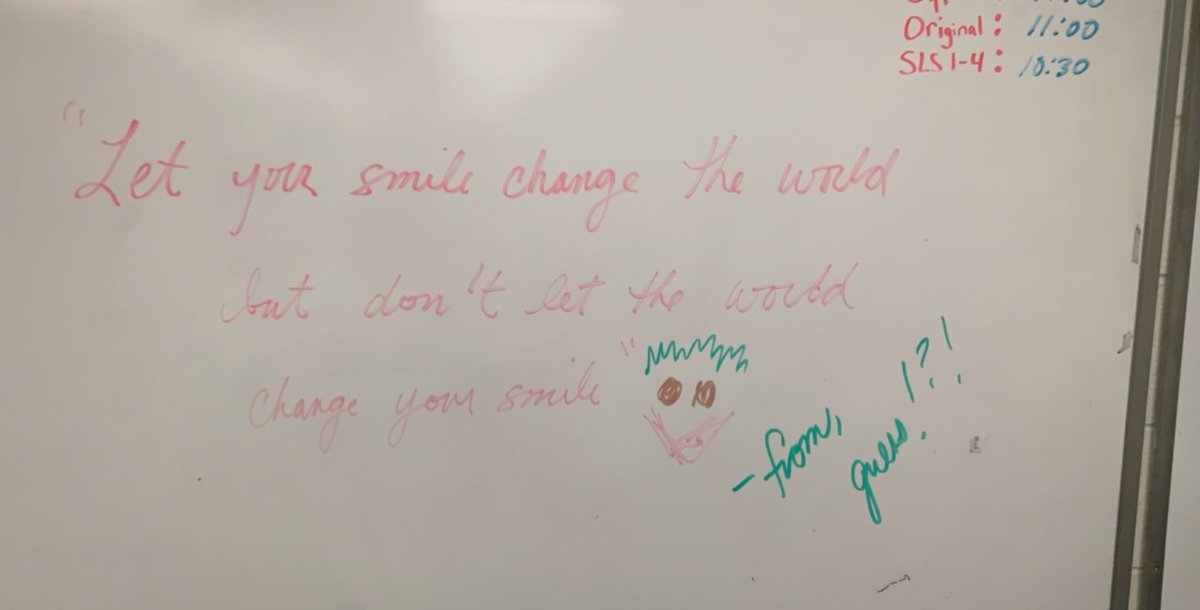 Original: 11:00
SLS 1-4: 10:30
"Let your smile change the world
but don't let the world
change your smile"
-from,
guess!?!